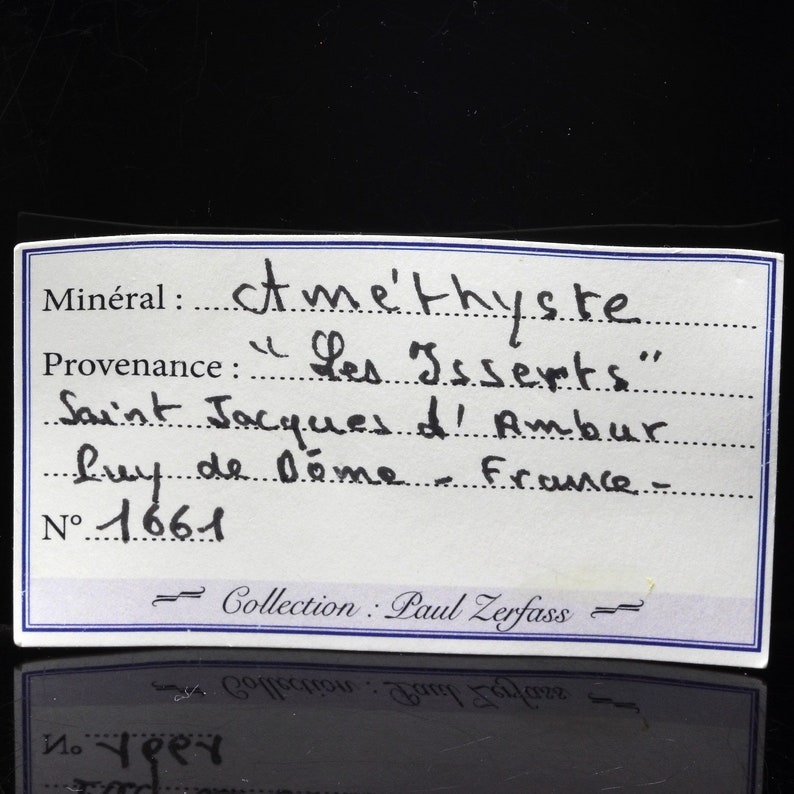 Minéral : Améthyste
Provenance : "Les Isserts"
Saint Jacques d'Ambur
Puy de Dôme - France -
N° 1661
Collection : Paul Zerfass